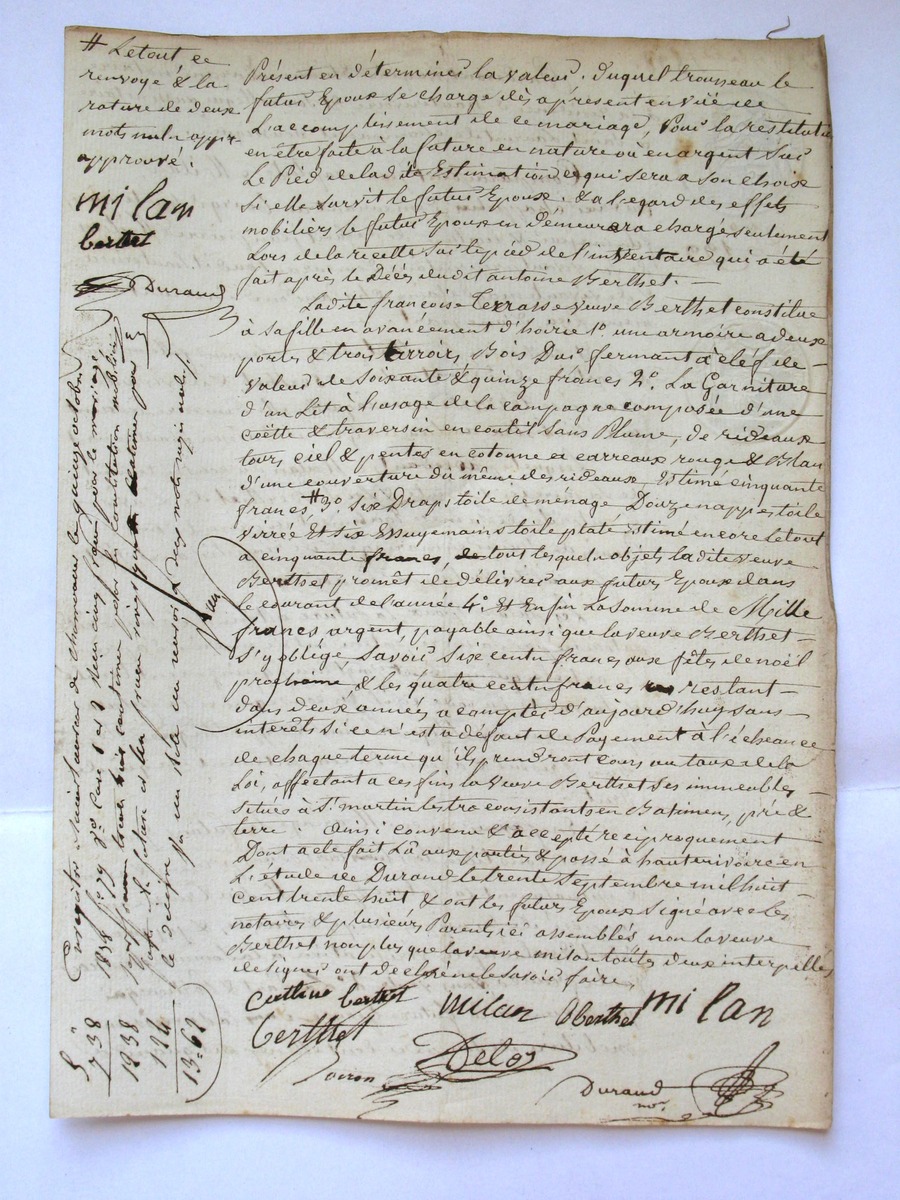 # Le tout ce
renvoyé & la
rature de deux
mots nuls appr
approuvé.
milan
berthet
Durand
Présent en détermines la valeur. Duquel trousseau le
futur Epoux se charge dès aprésent en vüe de
L'accomplissement de ce mariage, Pour la restitution
en être faite à la future en nature ou en argent sur
Le Pied de ladite Estimation ce qui sera a son choix
si elle survit le futur Epoux. & a l'egard des effets
mobiliers le futur Epoux en démeurera chargé seulement
Lors de la recette sur le pied de l'inventaire qui a été
fait après le Décés dudit antoine Berthet. —
Ladite françoise Terrasse veuve Berthet constitue
à sa fille en avancément d'hoirie 1° une armoire a deux
portes & trois tirroirs Bois Dur fermant à clef de
valeur de soixante & quinze francs 2°. La Garniture
d'un Lit à l'usage de la campagne composée d'une
coëtte & traversin en coutil sans Plume, de rideaux
tours ciel & pentes en cotonne a carreaux rouge & Blan
d'une couverture du même des rideaux, Estimé cinquante
francs # 3°. six Draps toile de ménage, Douze nappes toile
virrée Et six Essuyemains toile plate Estimé encore le tout
a cinquante francs, de tout lesquels objets ladite veuve
Berthet promêt de délivrer aux futurs Epoux dans
le courant de l'année 4°. Et Enfin La somme de Mille
francs argent, payable ainsi que la veuve Berthet —
s'y oblige savoir six cents francs aux fêtes de noël
prochaine, & les quatre cents francs restant —
dans deux années a compter d'aujourd'huy sans —
interêts si ce n'est a défaut de Payement à l'écheance
de chaque terme qu'ils prendront cours au taux de la
Loi, affectant a ces fins la veuve Berthet ses immeubles —
situés à St. martin lestra consistants en Batimens, pré &
terre. Ainsi convenu & accepté réciproquement
Dont acte fait Lû aux parties & passé à hauterivoire en
L'étude de Durand le trente septembre mil huit —
cent trente huit & ont les futurs Epoux signé avec les
notaires & plusieurs Parents ici assemblés non la veuve
Berthet non plus que la veuve milan toutes deux interpellés
de signer ont déclaré ne le savoir faire.
berthet milan Oberthet milan
berthet Deloy
Durand
nore
Enregistré à Saint Laurent de chamousset le quinze octobre
1838 f° 79
738
1238
124
13=62